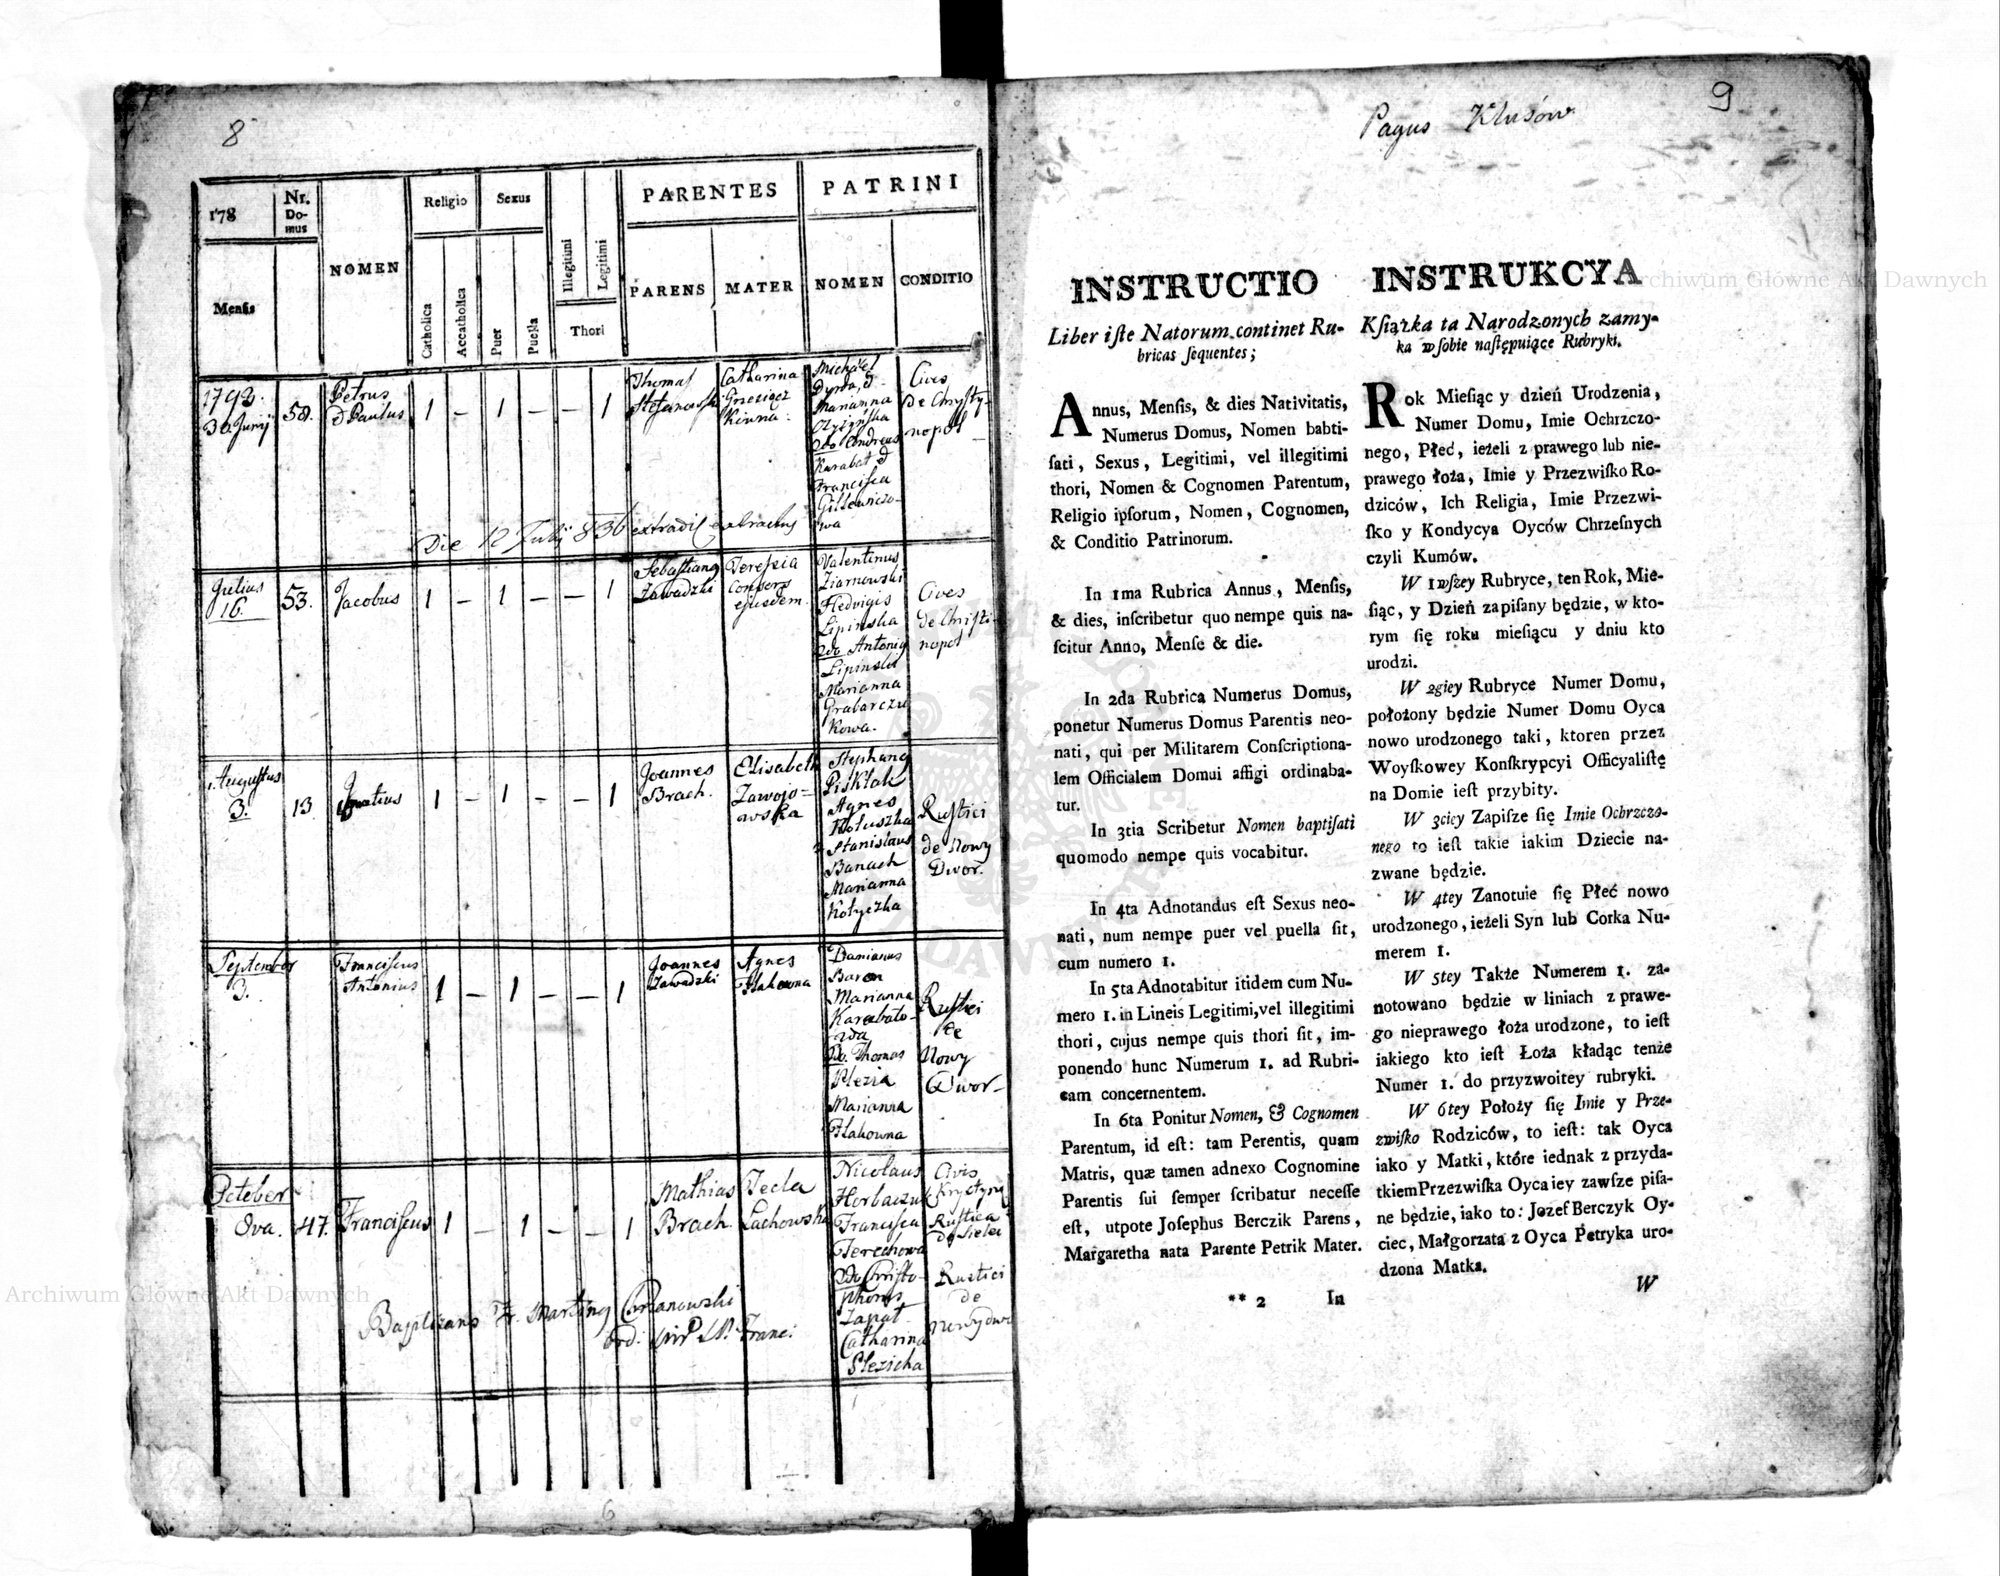 8
178
Nr.
Do-
mus
Mensis
NOMEN
Religio
Catholica
Accatholica
Sexus
Puer
Puella
Illegitimi
Legitimi
Thori
PARENTES
PARENS
MATER
PATRINI
NOMEN
CONDITIO
1792.
30 Junij
Petrus
& Paulus
1 – 1 – – 1
Thomas
Catharina
Michael
Marianna
2do Andreas
Karabat &
Francisca
wa
Cives
de Chrysty-
nopol
Die 12 Julij 836 extradit extractus
Julius
16.
53.
Jacobus
1 – 1 – – 1
Sebastiang
Zawadzki
Teressia
Consors
ejusdem.
Valentinus
Ziarnowski
Hedvigis
Lipinska
2do Antonig
Lipinski
Marianna
Grabarczu
kowa.
Cives
de Christi-
nopol
Augustus
3.
13
Ignatius
1 – 1 – – 1
Joannes
Brach.
Elisabeth
Zawojo-
wska
Stephang
Pisklak
Agnes
Stanislaus
Banach
Marianna
Rustici
de Nowy
Dwor.
September
3.
Franciscus
Antonius
1 – 1 – – 1
Joannes
Zawadzki
Agnes
Hakowna
Damianus
Baron
Marianna
Karabato-
wa
2do. Thomas
Slezia
Marianna
Hakowna
Rustici
de
Nowy
Dwor–
October
8va.
47.
Franciscus
1 – 1 – – 1
Mathias
Brach
Tecla
Lachowska
Nicolaus
Horbaczuk
Francisca
Terechowa
2do Christo-
phorus
Zapat
Catharina
Slezicha
Civis
Rustica
de Sielec
Rustici
de
Nowydwor
Baptizans Fr. Marting
Ord: Francis
6
9
Pagus Klusów
INSTRUCTIO
Liber iſte Natorum continet Ru-
bricas ſequentes;
Annus, Menſis, & dies Nativitatis,
Numerus Domus, Nomen babti-
ſati, Sexus, Legitimi, vel illegitimi
thori, Nomen & Cognomen Parentum,
Religio ipſorum, Nomen, Cognomen,
& Conditio Patrinorum.
In 1ma Rubrica Annus, Menſis,
& dies, inſcribetur quo nempe quis na-
ſcitur Anno, Menſe & die.
In 2da Rubrica Numerus Domus,
ponetur Numerus Domus Parentis neo-
nati, qui per Militarem Conſcriptiona-
lem Officialem Domui affigi ordinaba-
tur.
In 3tia Scribetur Nomen baptiſati
quomodo nempe quis vocabitur.
In 4ta Adnotandus eſt Sexus neo-
nati, num nempe puer vel puella ſit,
cum numero 1.
In 5ta Adnotabitur itidem cum Nu-
mero 1. in Lineis Legitimi, vel illegitimi
thori, cujus nempe quis thori ſit, im-
ponendo hunc Numerum 1. ad Rubri-
cam concernentem.
In 6ta Ponitur Nomen, & Cognomen
Parentum, id eſt: tam Perentis, quam
Matris, quæ tamen adnexo Cognomine
Parentis ſui ſemper ſcribatur neceſſe
eſt, utpote Joſephus Berczik Parens,
Margaretha nata Parente Petrik Mater.
** 2 In
INSTRUKCYA
Kſiązka ta Narodzonych zamy-
ka w ſobie naſtępuiące Rubryki.
Rok Mieſiąc y dzień Urodzenia,
Numer Domu, Imie Ochrzczo-
nego, Płeć, ieżeli z prawego lub nie-
prawego łoża, Imie y Przezwiſko Ro-
dziców, Ich Religia, Imie Przezwi-
ſko y Kondycya Oyców Chrzeſnych
czyli Kumów.
W 1wſzey Rubryce, ten Rok, Mie-
ſiąc, y Dzień zapiſany będzie, w kto-
rym ſię roku mieſiącu y dniu kto
urodzi.
W 2giey Rubryce Numer Domu,
położony będzie Numer Domu Oyca
nowo urodzonego taki, ktoren przez
Woyſkowey Konſkrypcyi Officyaliſtę
na Domie ieſt przybity.
W 3ciey Zapiſze ſię Imie Ochrzczo-
nego to ieſt takie iakim Dziecie na-
zwane będzie.
W 4tey Zanotuie ſię Płeć nowo
urodzonego, ieżeli Syn lub Corka Nu-
merem 1.
W 5tey Także Numerem 1. za-
notowano będzie w liniach z prawe-
go nieprawego łoża urodzone, to ieſt
iakiego kto ieſt Łoża kładąc tenże
Numer 1. do przyzwoitey rubryki.
W 6tey Położy ſię Imie y Prze-
zwiſko Rodziców, to ieſt: tak Oyca
iako y Matki, które iednak z przyda-
tkiem Przezwiſka Oyca iey zawſze piſa-
ne będzie, iako to: Jozef Berczyk Oy-
ciec, Małgorzata z Oyca Petryka uro-
dzona Matka.
W
Archiwum Główne Akt Dawnych
Archiwum Główne Akt Dawnych